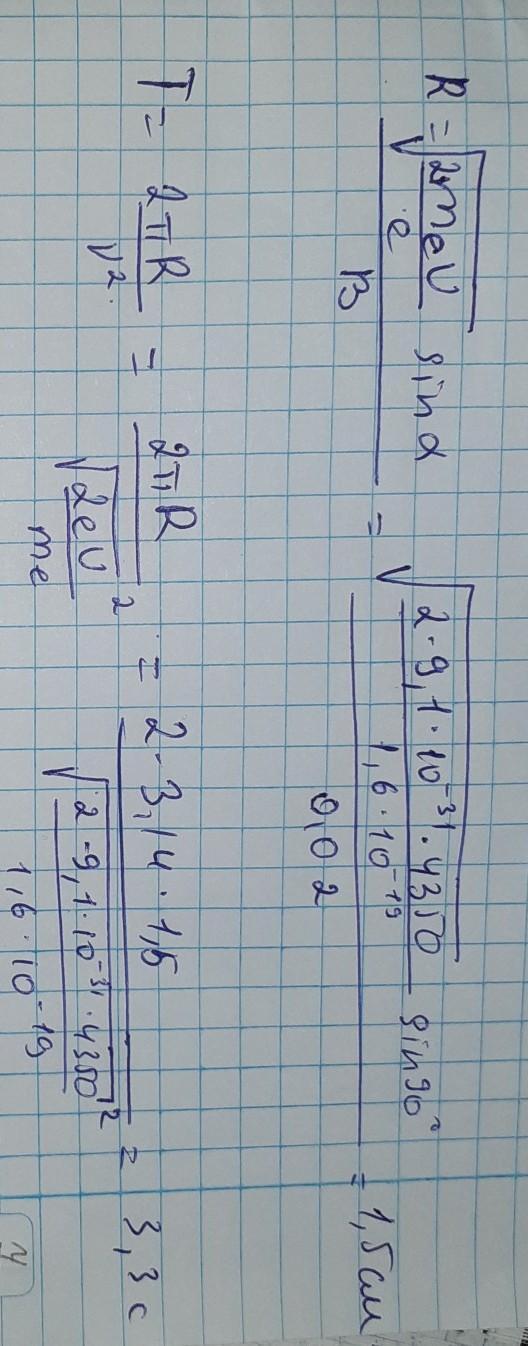 R = √(2meU/e) sinα / B = √(2·9,1·10⁻³¹·4350 / 1,6·10⁻¹⁹) sin90° / 0,02 = 1,5 см
T = 2πR / v² = 2πR / √(2eU/me)² = 2·3,14·1,5 / √(2·9,1·10⁻³¹·4350 / 1,6·10⁻¹⁹)² = 3,3 с